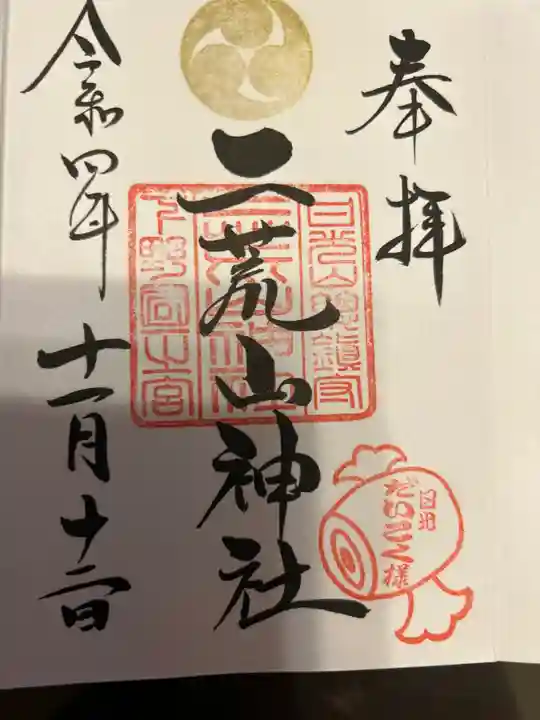 奉拝
日光山総鎮守
二荒山神社
二荒山神社
下野國一之宮
令和四年十一月十二日
日光
だいこく様